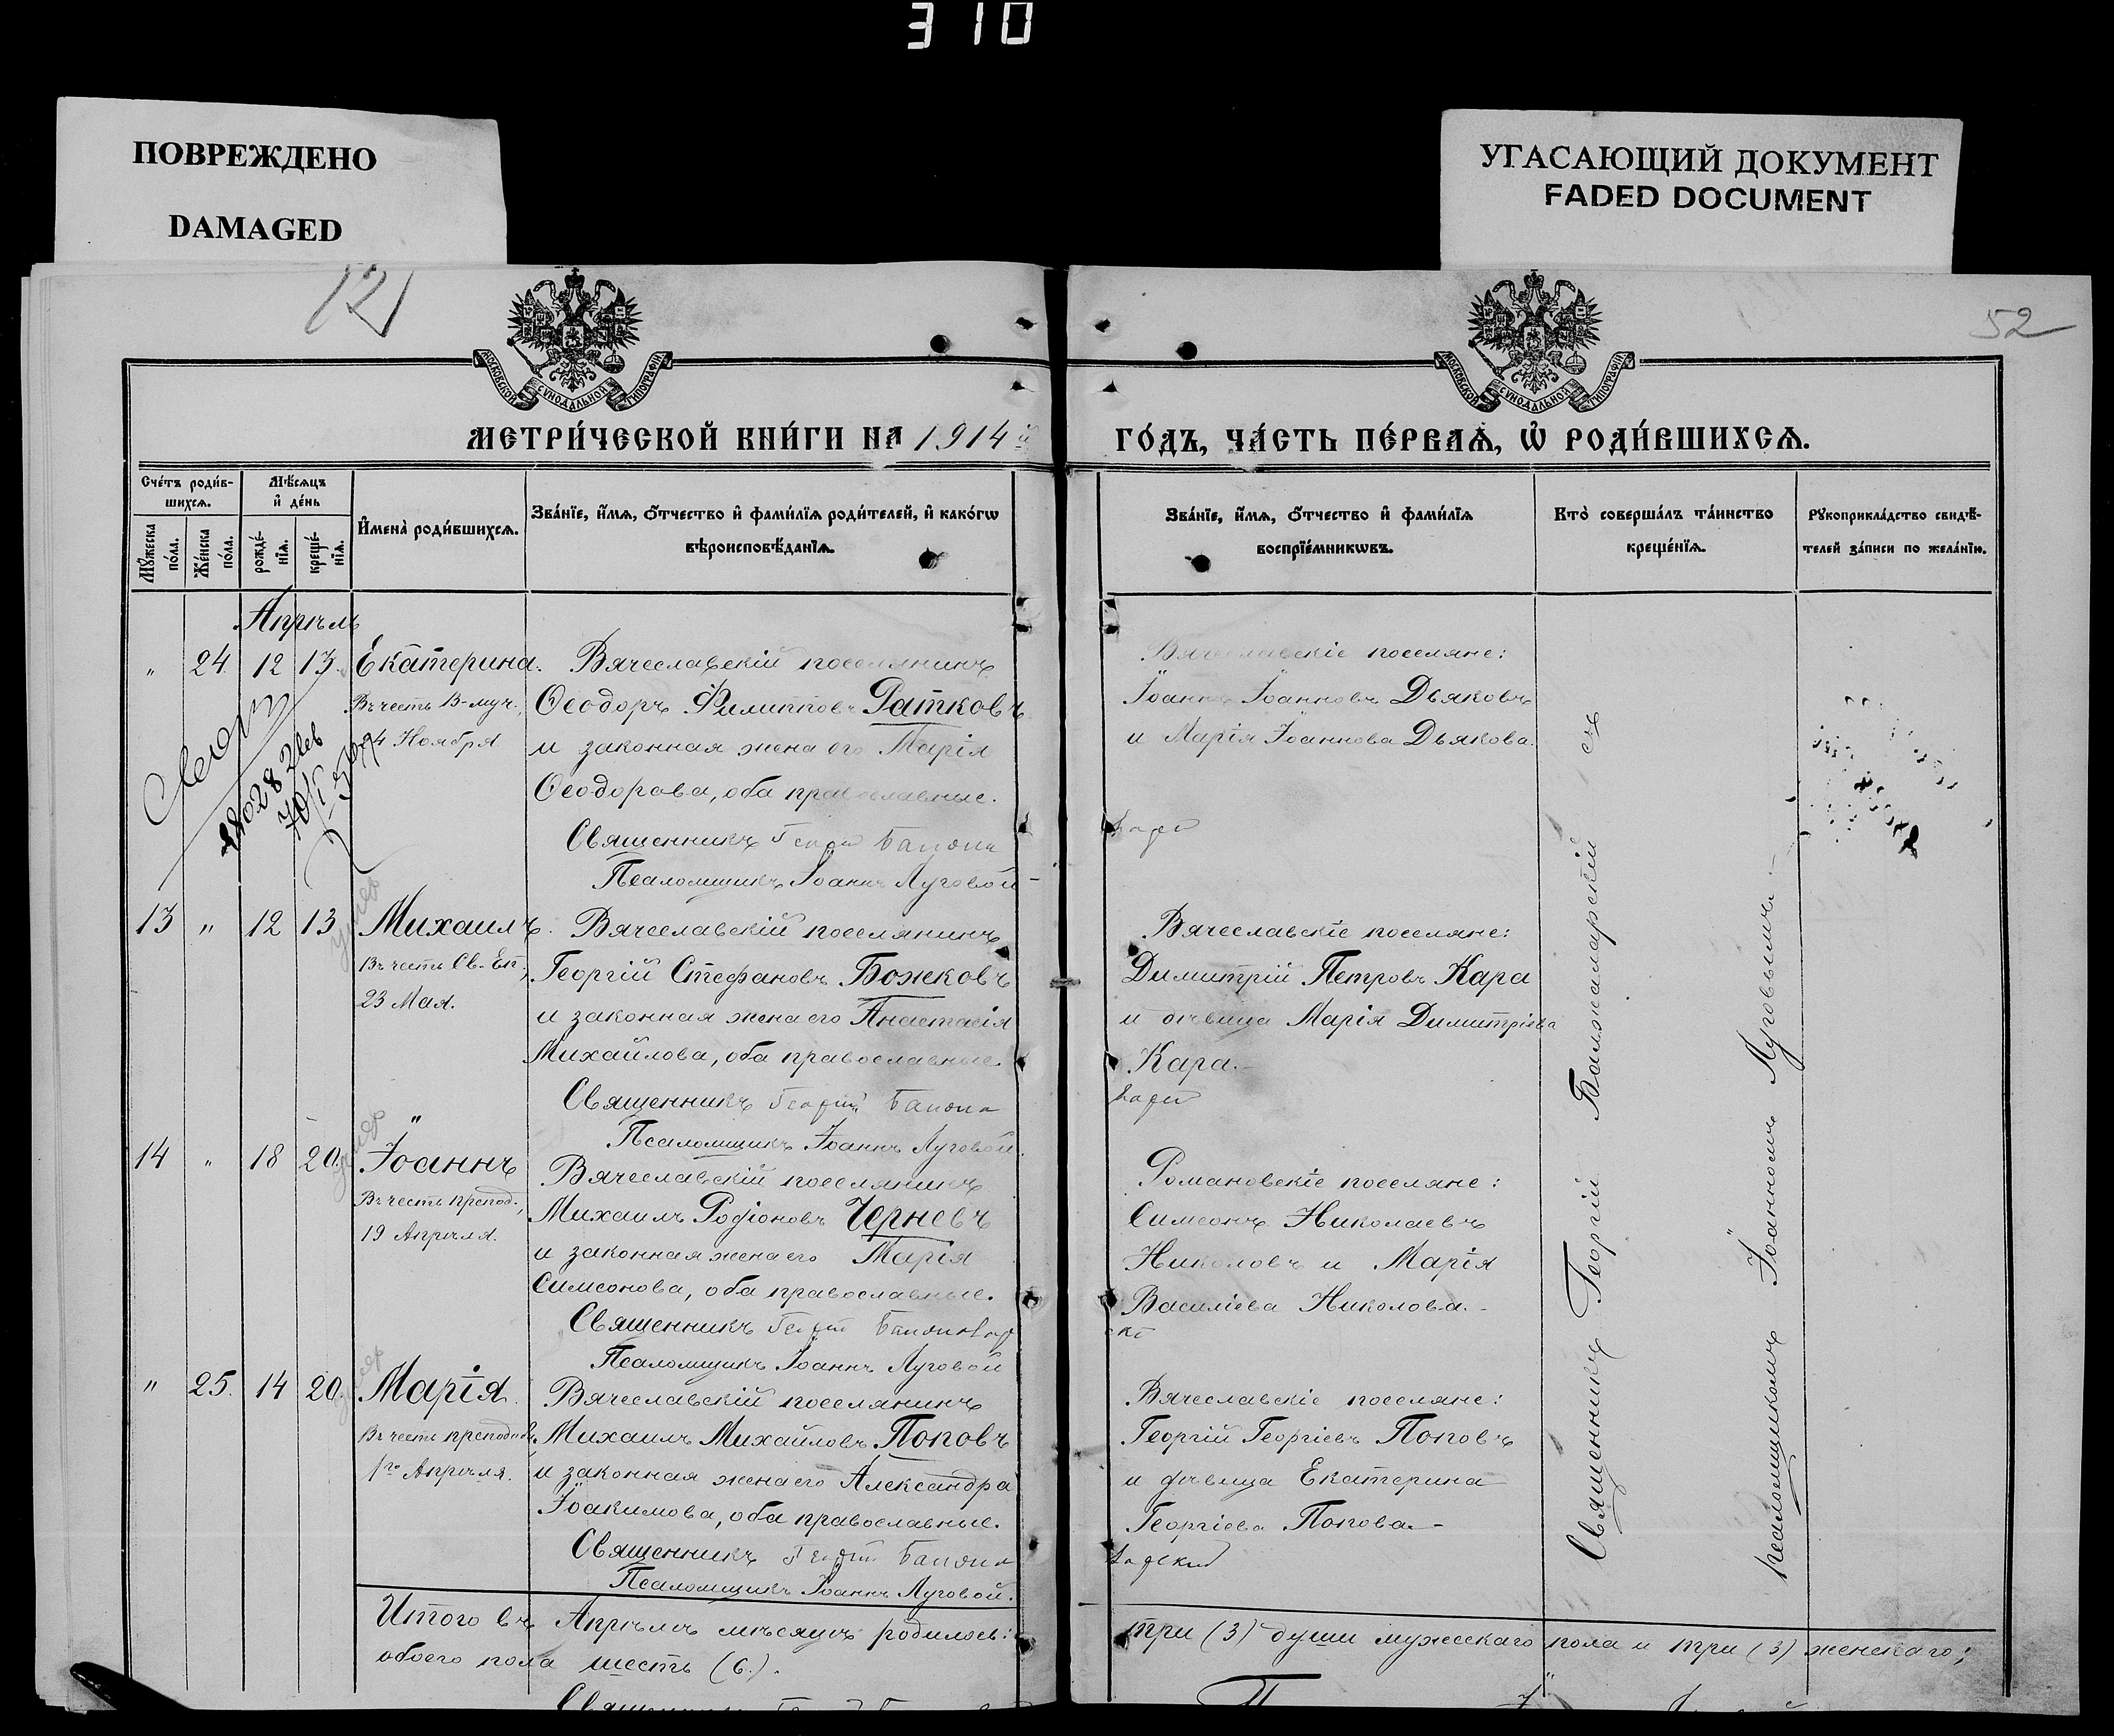 310
ПОВРЕЖДЕНО
DAMAGED
УГАСАЮЩИЙ ДОКУМЕНТ
FADED DOCUMENT
121
52
МОСКОВСКОЙ СѴНОДАЛЬНОЙ ТИПОГРАФІИ
МОСКОВСКОЙ СѴНОДАЛЬНОЙ ТИПОГРАФІИ
МЕТРИ́ЧЕСКОЙ КНИ́ГИ НА 1914й
ГО́ДЪ, ЧА́СТЬ ПЕ́РВАѦ, Ѡ҆ РОДИ́ВШИХСѦ.
Сче́тъ роди́в-
шихсѧ.
Мѣ́сѧцъ
и҆ де́нь
Мꙋ́жеска
по́ла.
Же́нска
по́ла.
рожде́-
нїѧ.
креще́-
нїѧ.
И҆мена̀ роди́вшихсѧ.
Зва́нїе, и҆́мѧ, ѻ҆́тчество и҆ фами́лїѧ роди́телей, и҆ како́гѡ
вѣроисповѣ́данїѧ.
Зва́нїе, и҆́мѧ, ѻ҆́тчество и҆ фами́лїѧ
воспрїе́мникѡвъ.
Кто̀ соверша́лъ та́инство
креще́нїѧ.
Рꙋкоприкла́дство свидѣ́-
телей за́писи по жела́нїю.
Апрѣль
" 24. 12 13. Екатерина.
Въ честь В-муч.,
24 Ноября
Вячеславскій поселянинъ
Ѳеодоръ Филипповъ Ратковъ
и законная жена его Марія
Ѳеодорова, оба православные.
Священникъ Георгій
Псаломщикъ Іоаннъ Луговой
Вячеславскіе поселяне:
Іоаннъ Іоанновъ Дьяковъ
и Марія Іоаннова Дьякова.
13 " 12 13 Михаилъ.
Въ честь Св. Еп.,
23 Мая.
Вячеславскій поселянинъ
Георгій Стефановъ Божковъ
и законная жена его Анастасія
Михайлова, оба православные.
Священникъ Георгій
Псаломщикъ Іоаннъ Луговой.
Вячеславскіе поселяне:
Димитрій Петровъ Кара
и дѣвица Марія Димитріева
Кара.
14 " 18 20. Іоаннъ
Въ честь препод.,
19 Апрѣля.
Вячеславскій поселянинъ
Михаилъ Родіоновъ Черневъ
и законная жена его Марія
Симеонова, оба православные.
Священникъ Георгій
Псаломщикъ Іоаннъ Луговой
Романовскіе поселяне:
Симеонъ Николаевъ
Николовъ и Марія
Василіева Николова.
" 25. 14 20. Марія.
Въ честь преподобн.
1го Апрѣля.
Вячеславскій поселянинъ
Михаилъ Михайловъ Поповъ
и законная жена его Александра
Іоакимова, оба православные.
Священникъ Георгій
Псаломщикъ Іоаннъ Луговой.
Вячеславскіе поселяне:
Георгій Георгіевъ Поповъ
и дѣвица Екатерина
Георгіева Попова.
Священникъ Георгій съ
псаломщикомъ Іоанномъ Луговымъ.
Итого въ Апрѣлѣ мѣсяцѣ родилось: три (3) души мужескаго пола и три (3) женскаго;
обоего пола шесть (6).